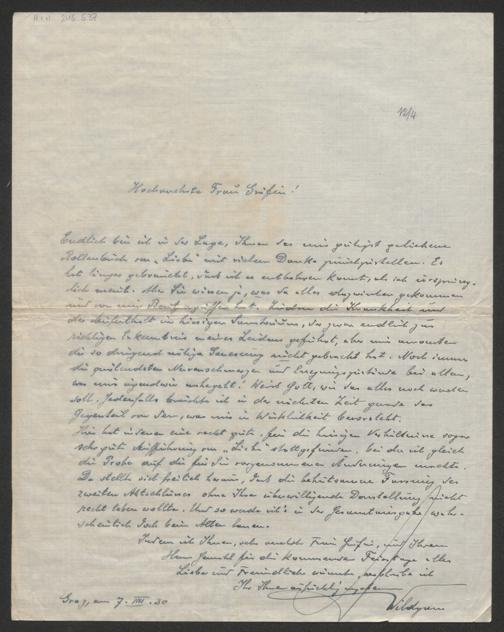 12/4
Hochverehrte Frau Gräfin!
Endlich bin ich in der Lage, Ihnen das mir gütigst geliehene
Rollenbuch von „Liebe" mit vielem Danke zurückzustellen. Es
hat länger gebraucht, daß ich es entbehren konnte, als ich ursprüng-
lich meinte. Aber Sie wissen ja, was da alles dazwischen gekommen
und von mir Besitz ergriffen hat. Zudem die Krankheit und
der Aufenthalt im hiesigen Sanatorium, der zwar endlich zur
richtigen Erkenntnis meines Leidens geführt, aber mir ansonsten
die so dringend nötige Besserung nicht gebracht hat. Noch immer
die quälendsten Nervenschmerzen und Erregungszustände bei allem,
was mir irgendwie nahegeht! Weiß Gott, wie das alles noch werden
soll. Jedenfalls brauchte ich in der nächsten Zeit gerade das
Gegenteil von dem, was mir in Wirklichkeit bevorsteht.
Hier hat indessen eine recht gute, für die hiesigen Verhältnisse sogar
sehr gute Aufführung von „Liebe" stattgefunden, bei der ich gleich
die Probe auf die für Sie vorgenommenen Änderungen machte.
Da stellte sich freilich heraus, daß die behutsamere Fassung des
zweiten Aktschlusses ohne Ihre überwältigende Darstellung nicht
recht leben wollte. Und so werde ich's in der Gesamtausgabe wahr-
scheinlich doch beim Alten lassen.
Indem ich Ihnen, sehr verehrte Frau Gräfin, und Ihrem
Herrn Gemahl für die kommenden Feiertage alles
Liebe und Freundliche wünsche, verbleibe ich
Ihr Ihnen aufrichtig ergebener
Wildgans
Graz, am 7. IV. 30